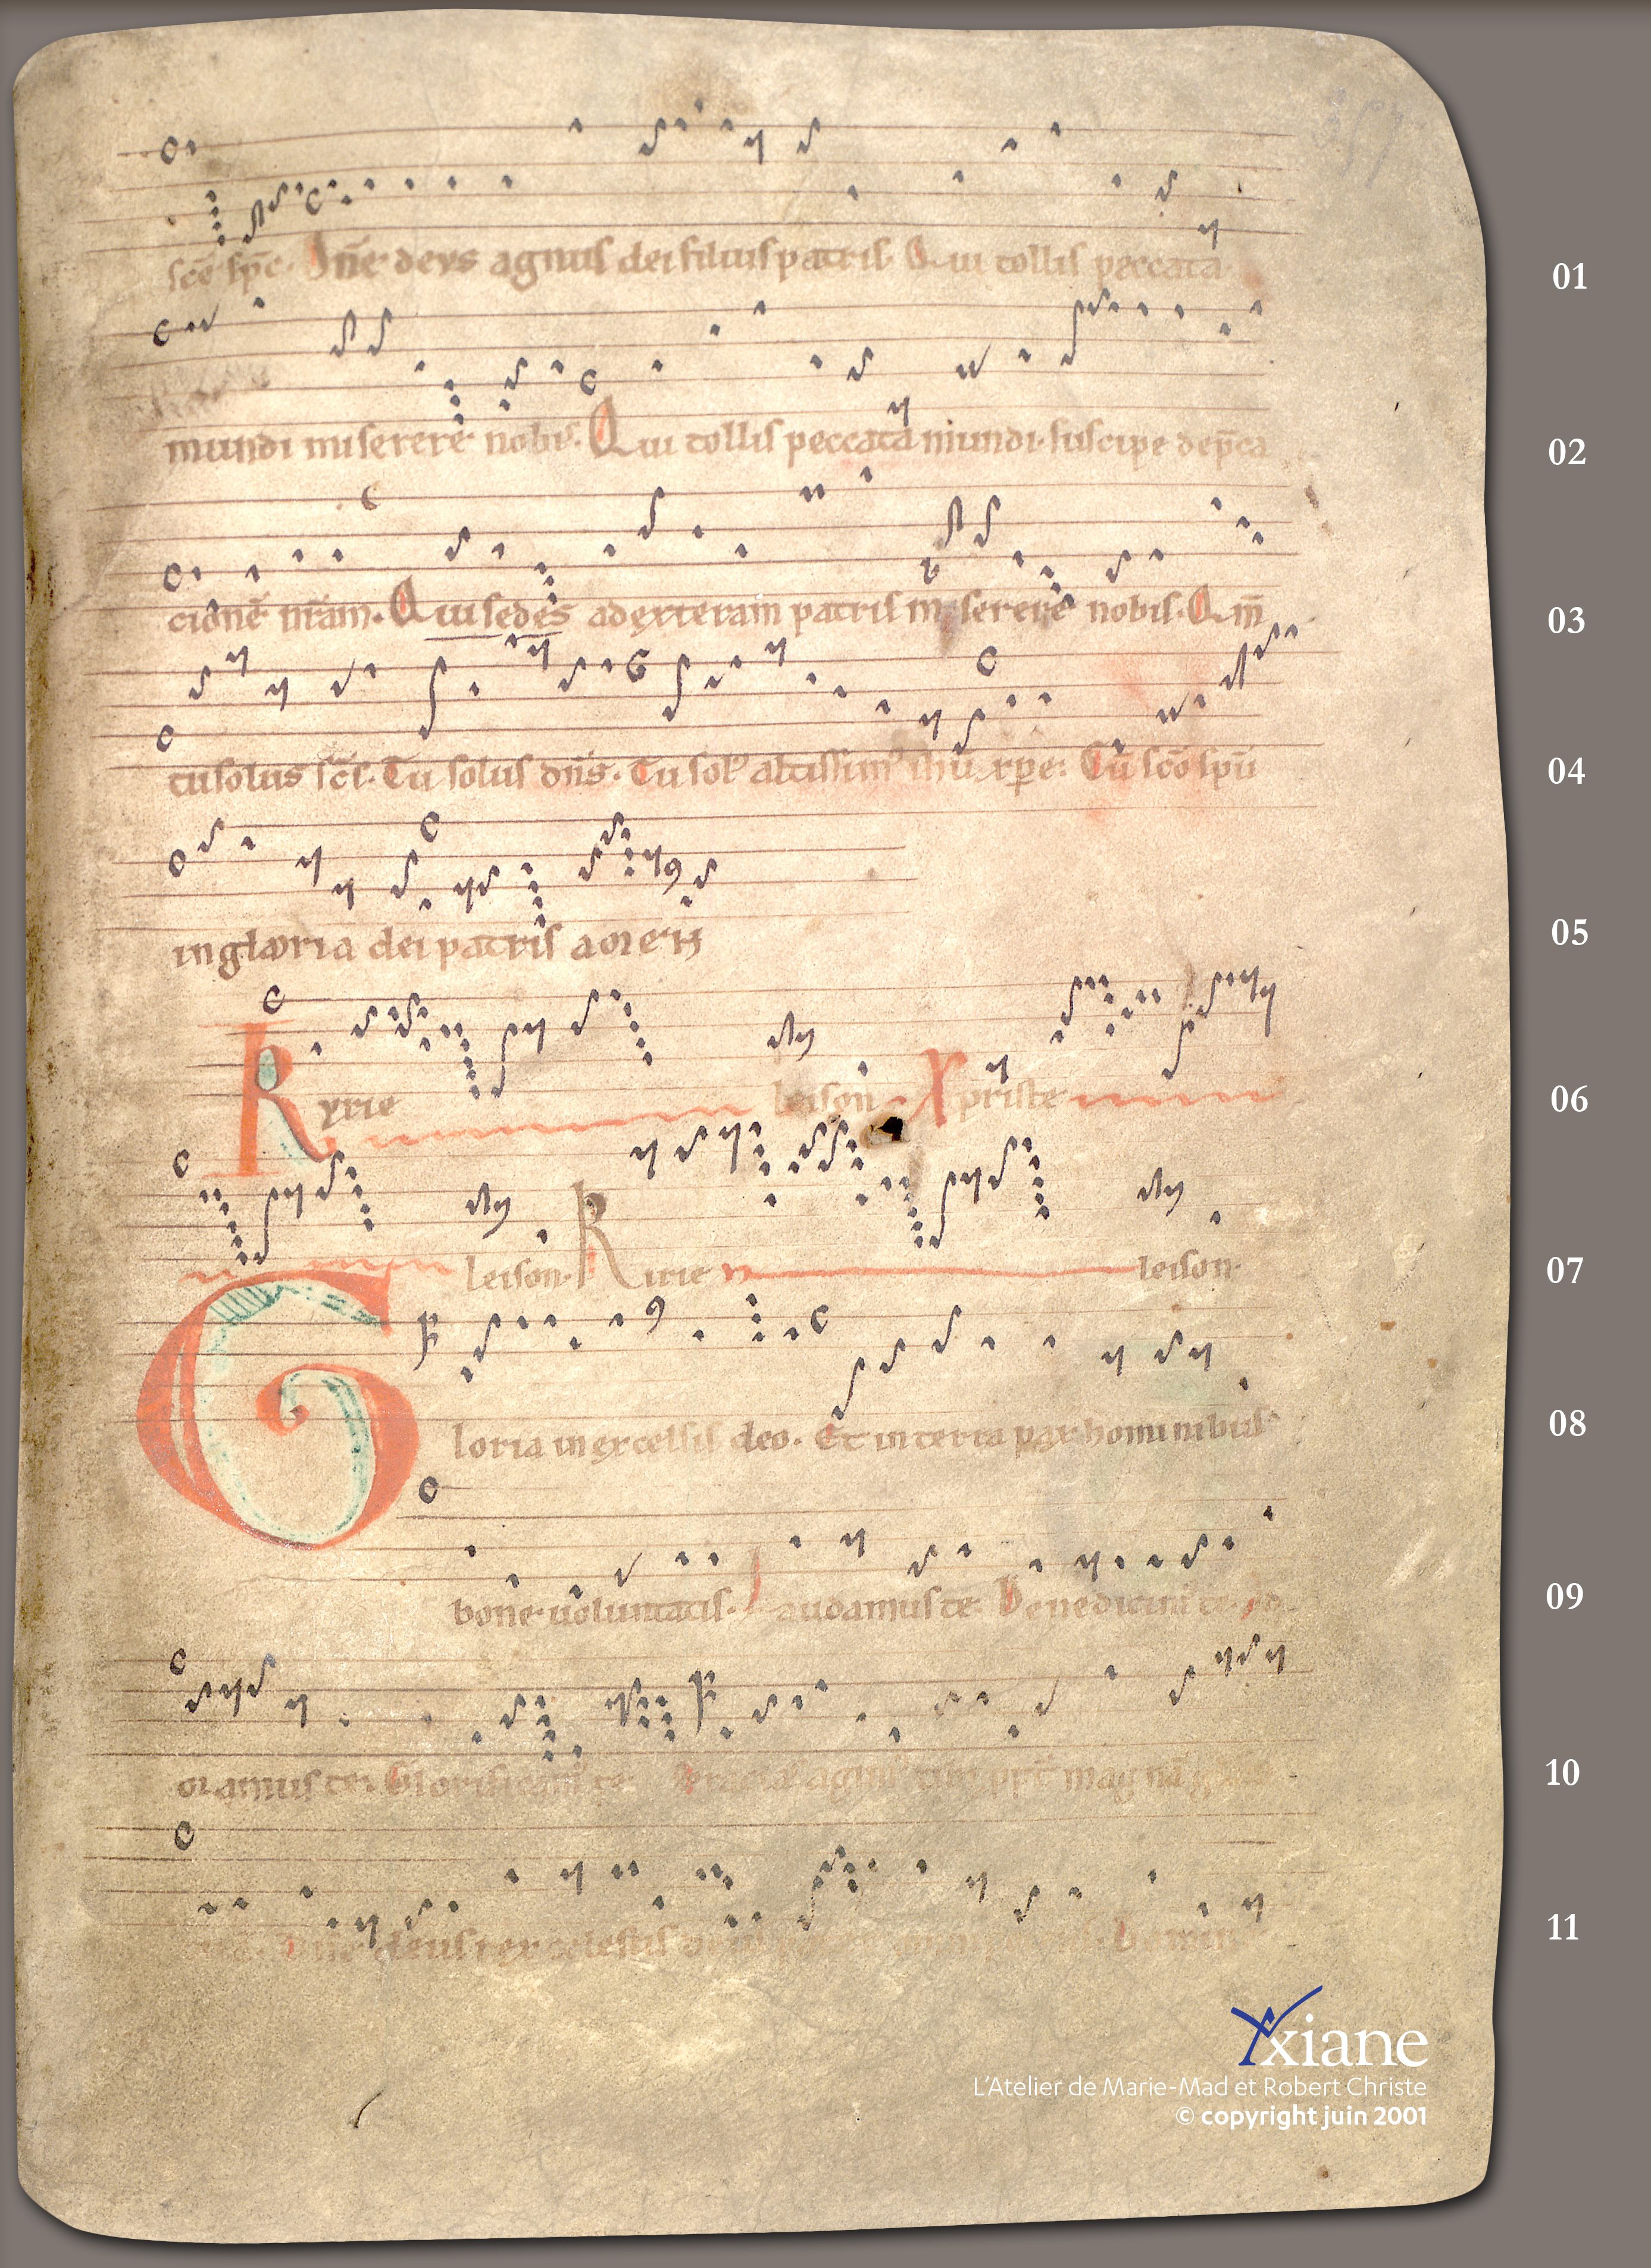 357
scē sp̄c. Dn̄e deus agnus dei filius patris. Qui tollis peccata 01
mundi miserere nobis. Qui tollis peccata mundi. suscipe dep̄ca 02
cionē nr̄am. Qui sedes ad exteram patris miserere nobis. Qm̄ 03
tu solus sc̄s. Tu solus dn̄s. Tu sol' altissim' ihū xp̄e. Cū scō spū 04
in gloria dei patris amen 05
Kyrie leison. Xpriste 06
leison. Kirie leison. 07
Gloria in excelsis deo. Et in terra pax hominibus 08
bone uoluntatis. Laudamus te. Benedicim' te. Ad 09
oramus te. Glorificam' te. magnā 10
Dn̄e deus rex celestis 11
Yxiane
L'Atelier de Marie-Mad et Robert Christe
© copyright juin 2001